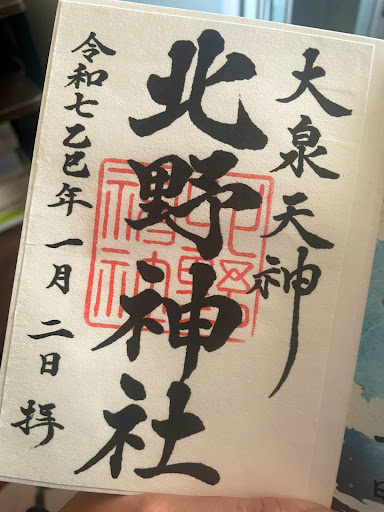 大泉天神
北野神社
令和七乙巳年一月二日 拝
北野神社